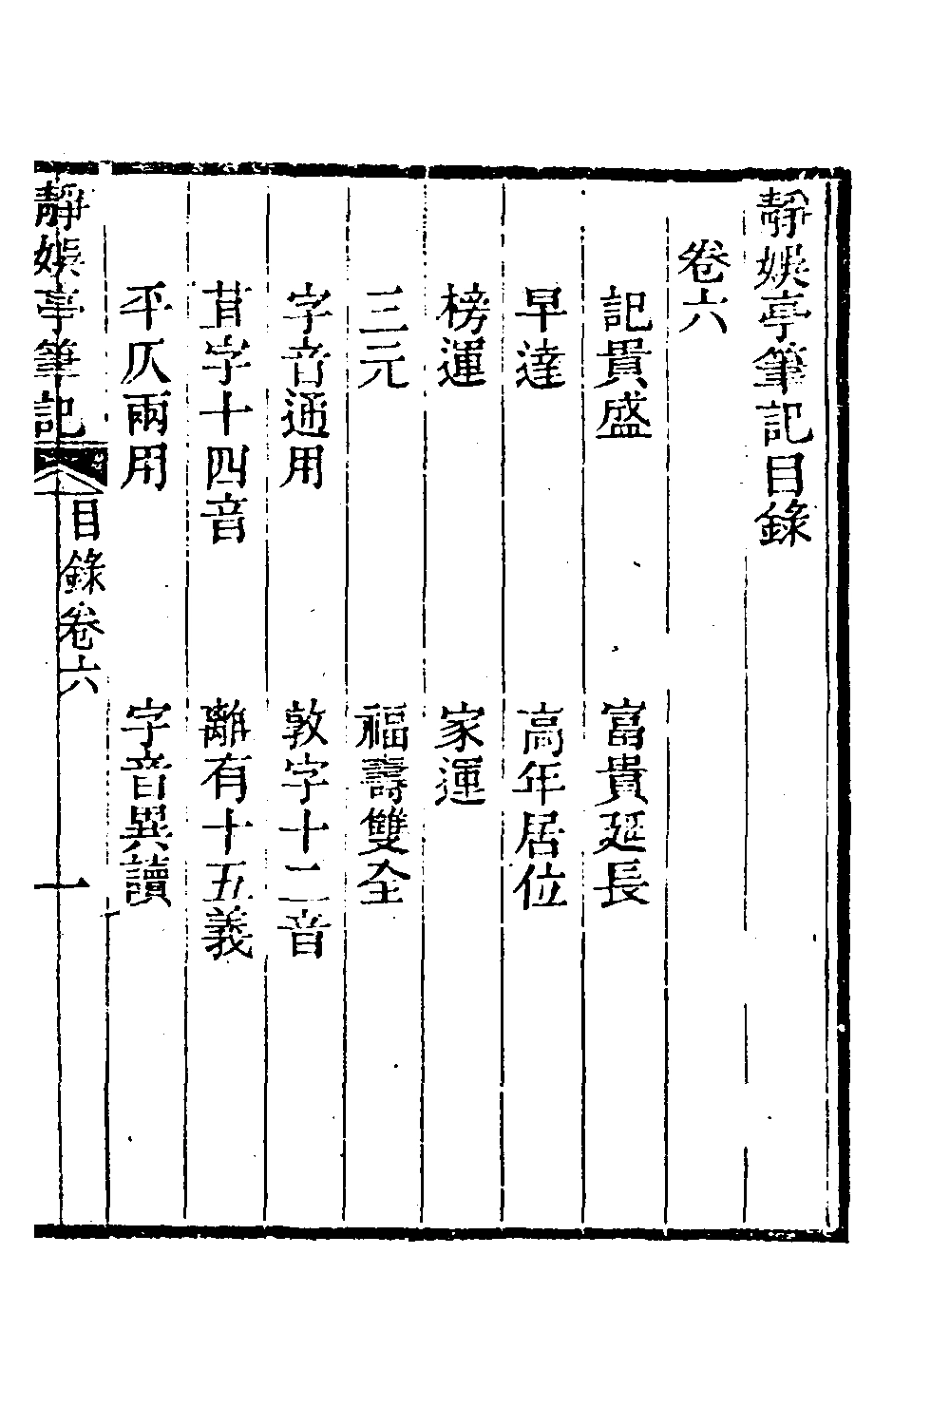 靜娛亭筆記目錄
卷六
記貴盛　富貴延長
早達　高年居位
榜運　家運
三元　福壽雙全
字音通用　敦字十二音
苴字十四音　離有十五義
平仄兩用　字音異讀
靜娛亭筆記　目錄卷六　一